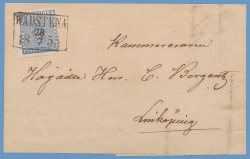 WADSTENA
28
7
1855
Kammereraren
Högädle Herr C. Borgentz
Linköping